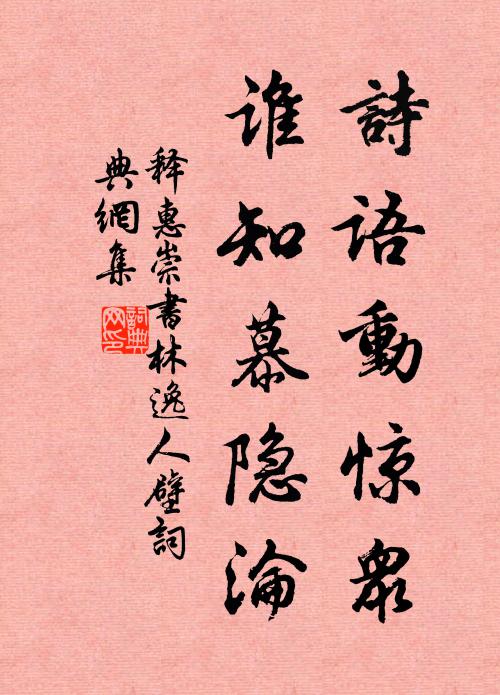 詩語動惊衆
谁知慕隐淪
释惠崇書林逸人壁詞
典網集
詞典網印